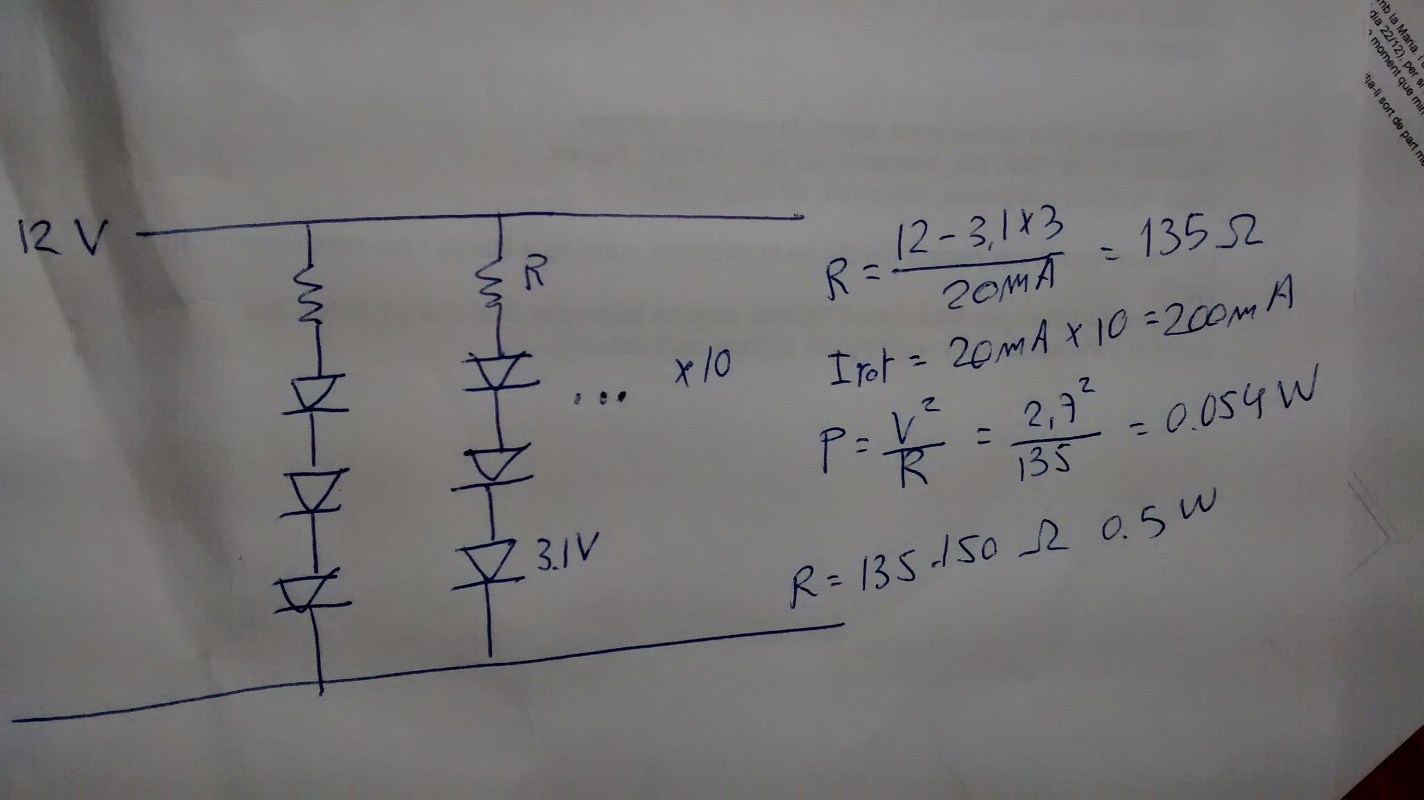 12 V
R
x10
3.1V
R = 12 - 3,1 x 3 / 20mA = 135 Ω
Itot = 20mA x 10 = 200mA
P = V² / R = 2,7² / 135 = 0.054 W
R = 135-150 Ω 0.5 W
mb la Maria
dia 22/12), per si
moment que
sort de part